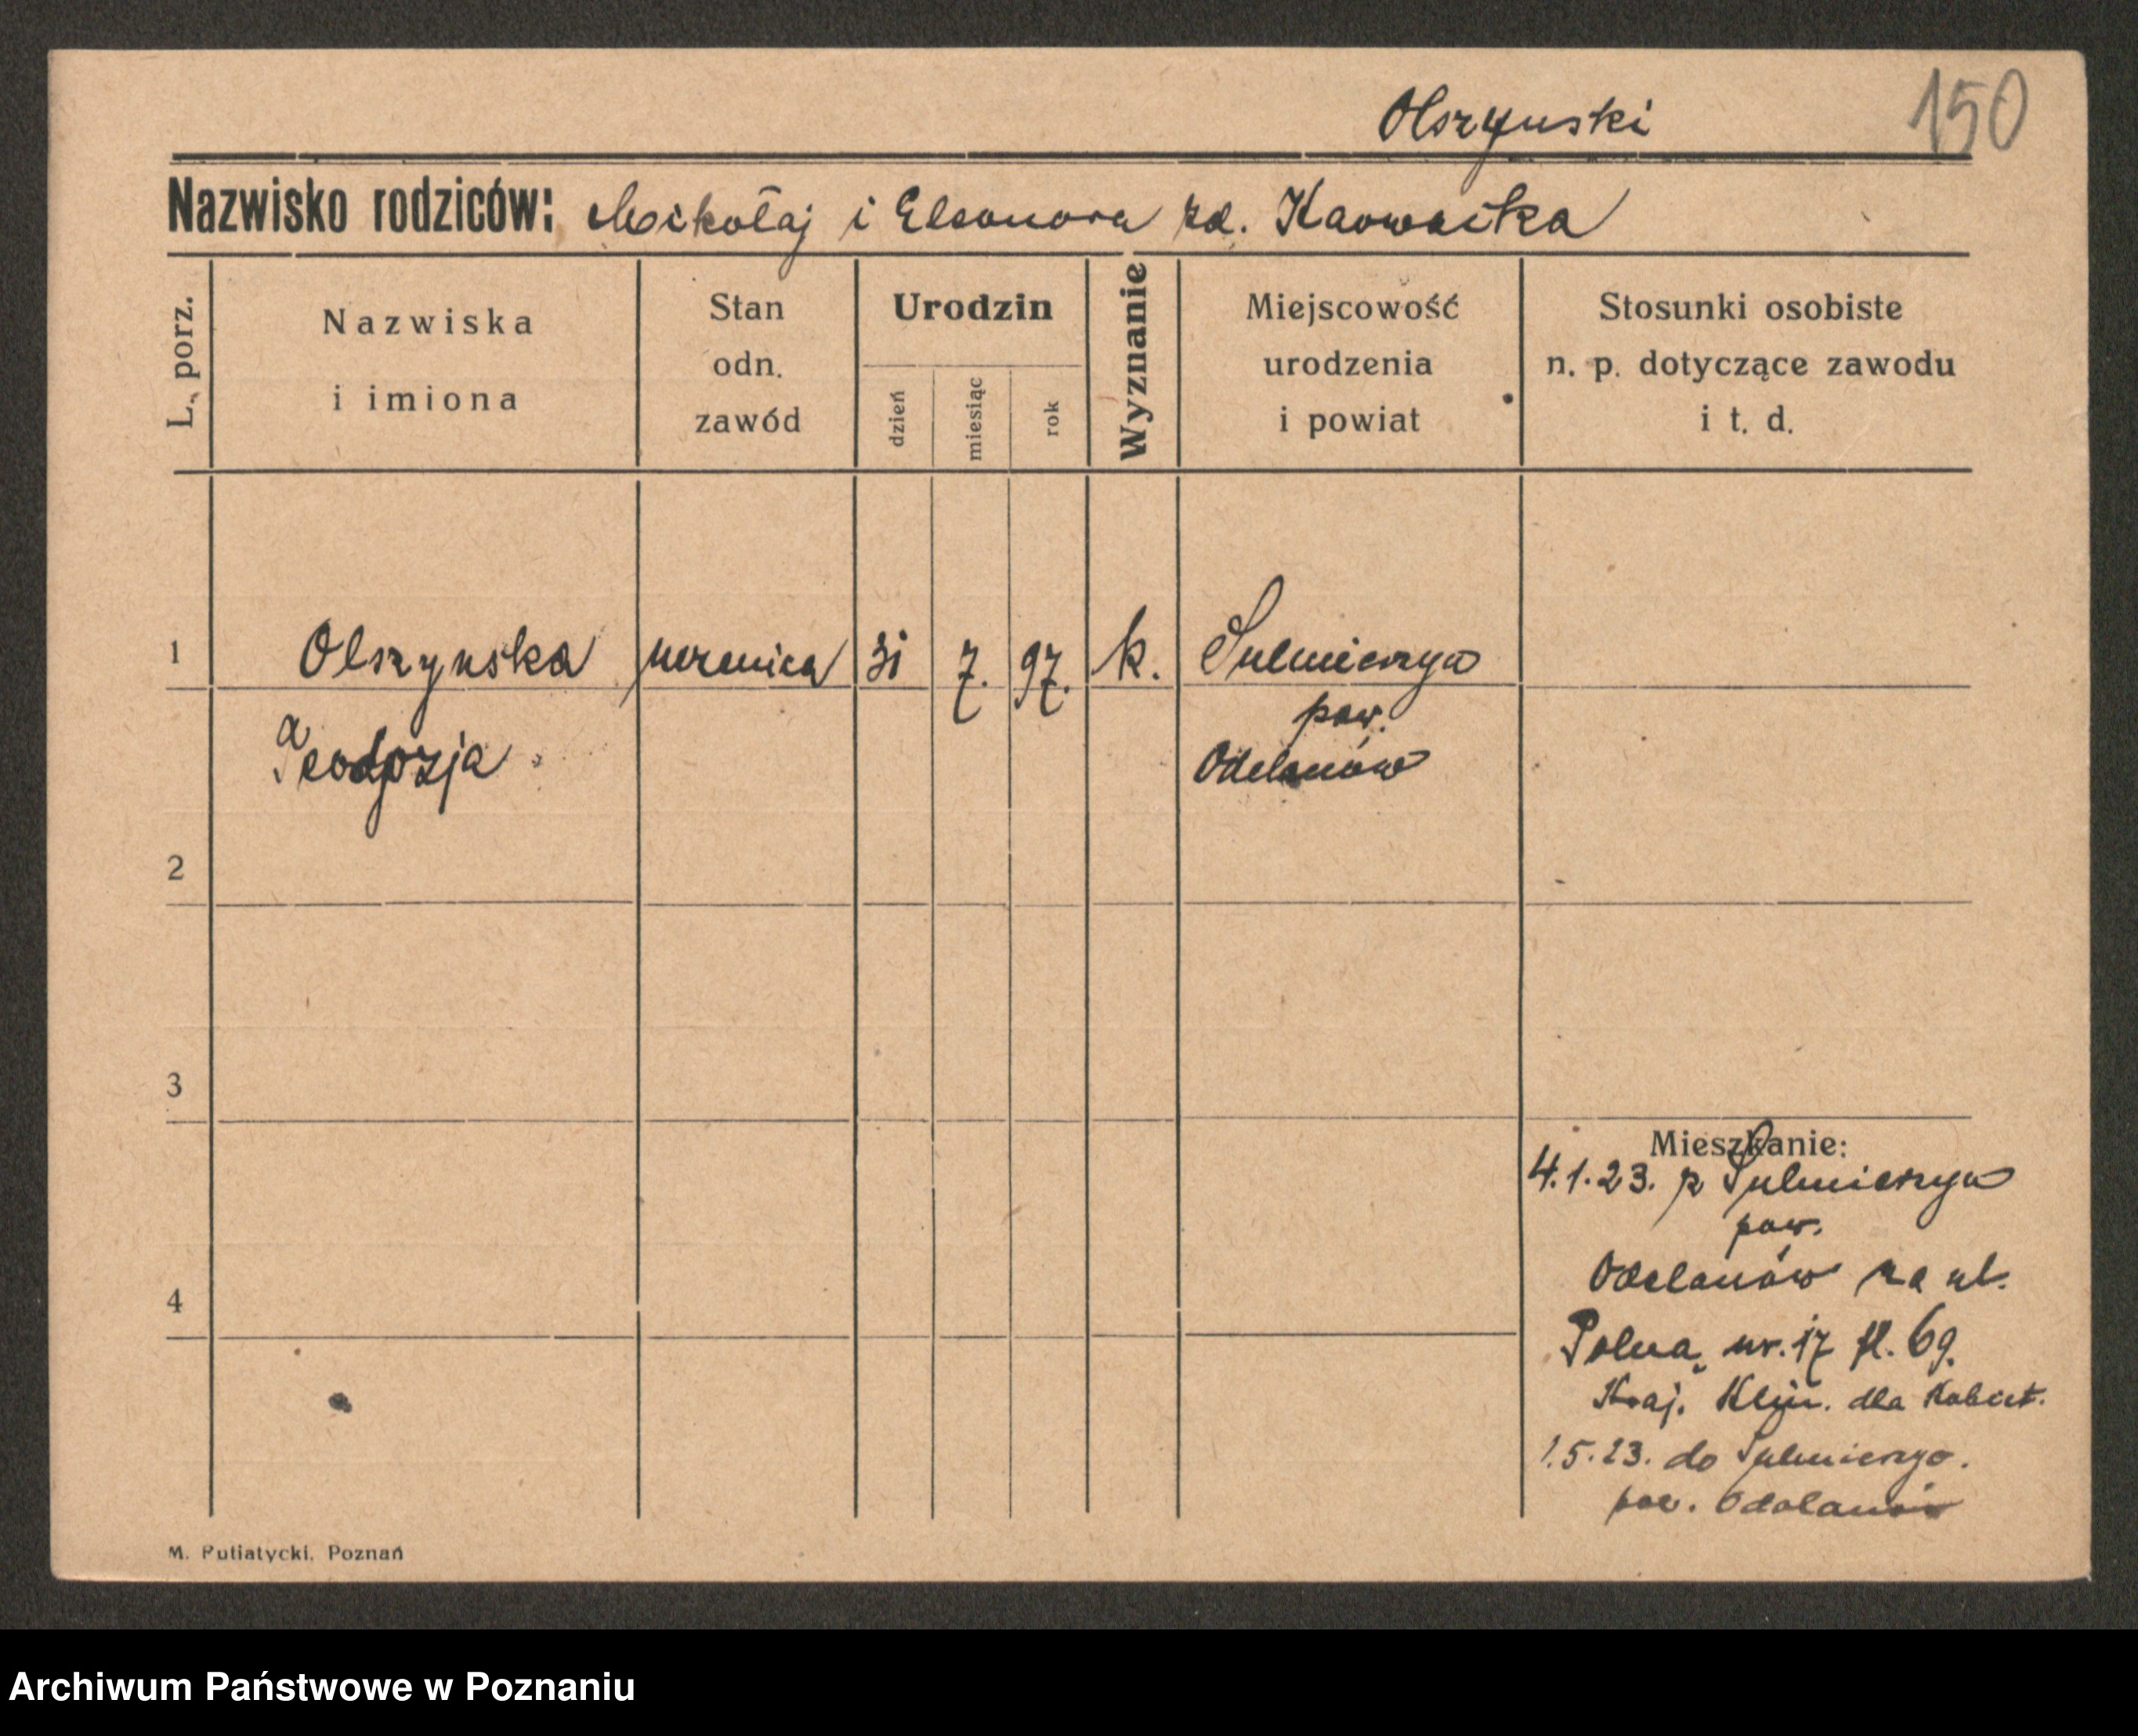 150
Olszynski
Nazwisko rodziców: Mikołaj i Eleonora zd.
L. porz.
Nazwiska
i imiona
Stan
odn.
zawód
Urodzin
dzień
miesiąc
rok
Wyznanie
Miejscowość
urodzenia
i powiat
Stosunki osobiste
n. p. dotyczące zawodu
i t. d.
1 Olszynska uczenica 31 7. 97. k. Sulmierzyce
pow.
Odolanów
2
3
4
Mieszkanie:
4.1.23. z Sulmierzyce
pow.
Odolanów na ul.
Polną nr. 17 fl. 69.
Kraj. Klin. dla Kobiet.
1.5.23. do Sulmierzyc.
pow. Odolanów
M. Putiatycki, Poznań
Archiwum Państwowe w Poznaniu